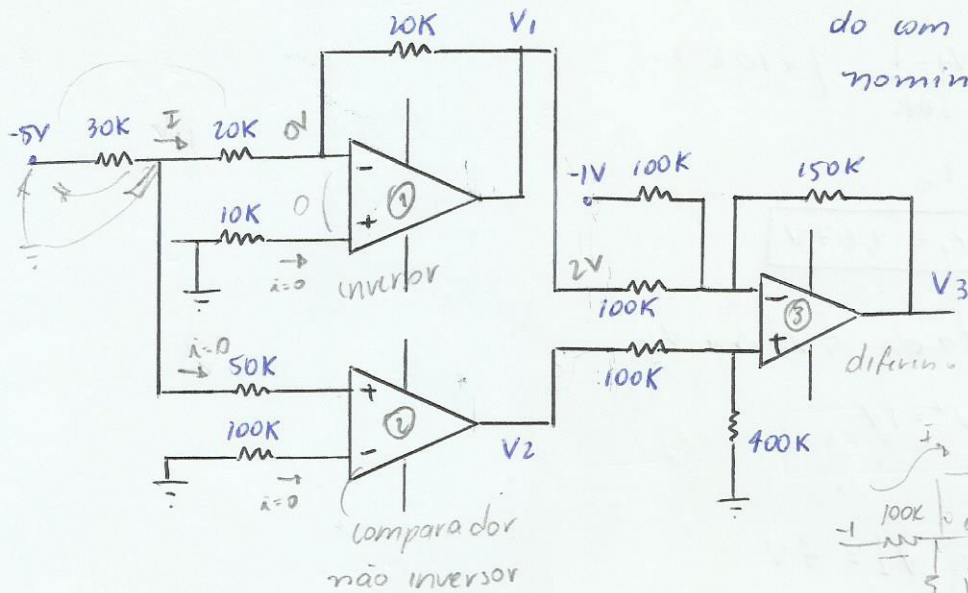 do com
nomin
20K
V1
-5V
30K
I
20K
0V
-
1
+
0
10K
i=0
inversor
-1V
100K
150K
2V
100K
-
3
+
V3
diferen.
100K
400K
i=0
50K
+
2
-
V2
100K
i=0
comparador
não inversor
I
-1
100K